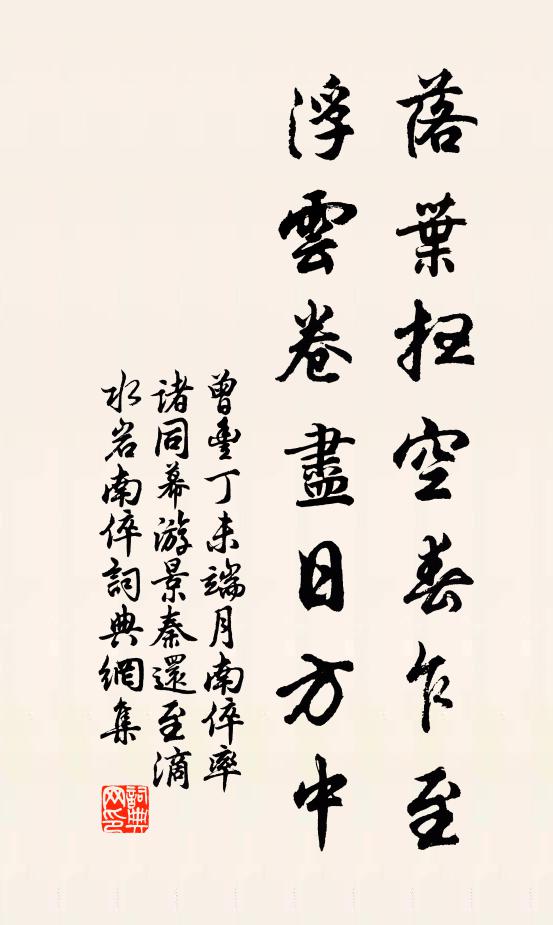 落葉掃空春乍至
浮雲卷盡日方中
曾豐丁未端月南倅率
諸同幕游景秦還至滴
水岩南倅詞典網集
詞典网印